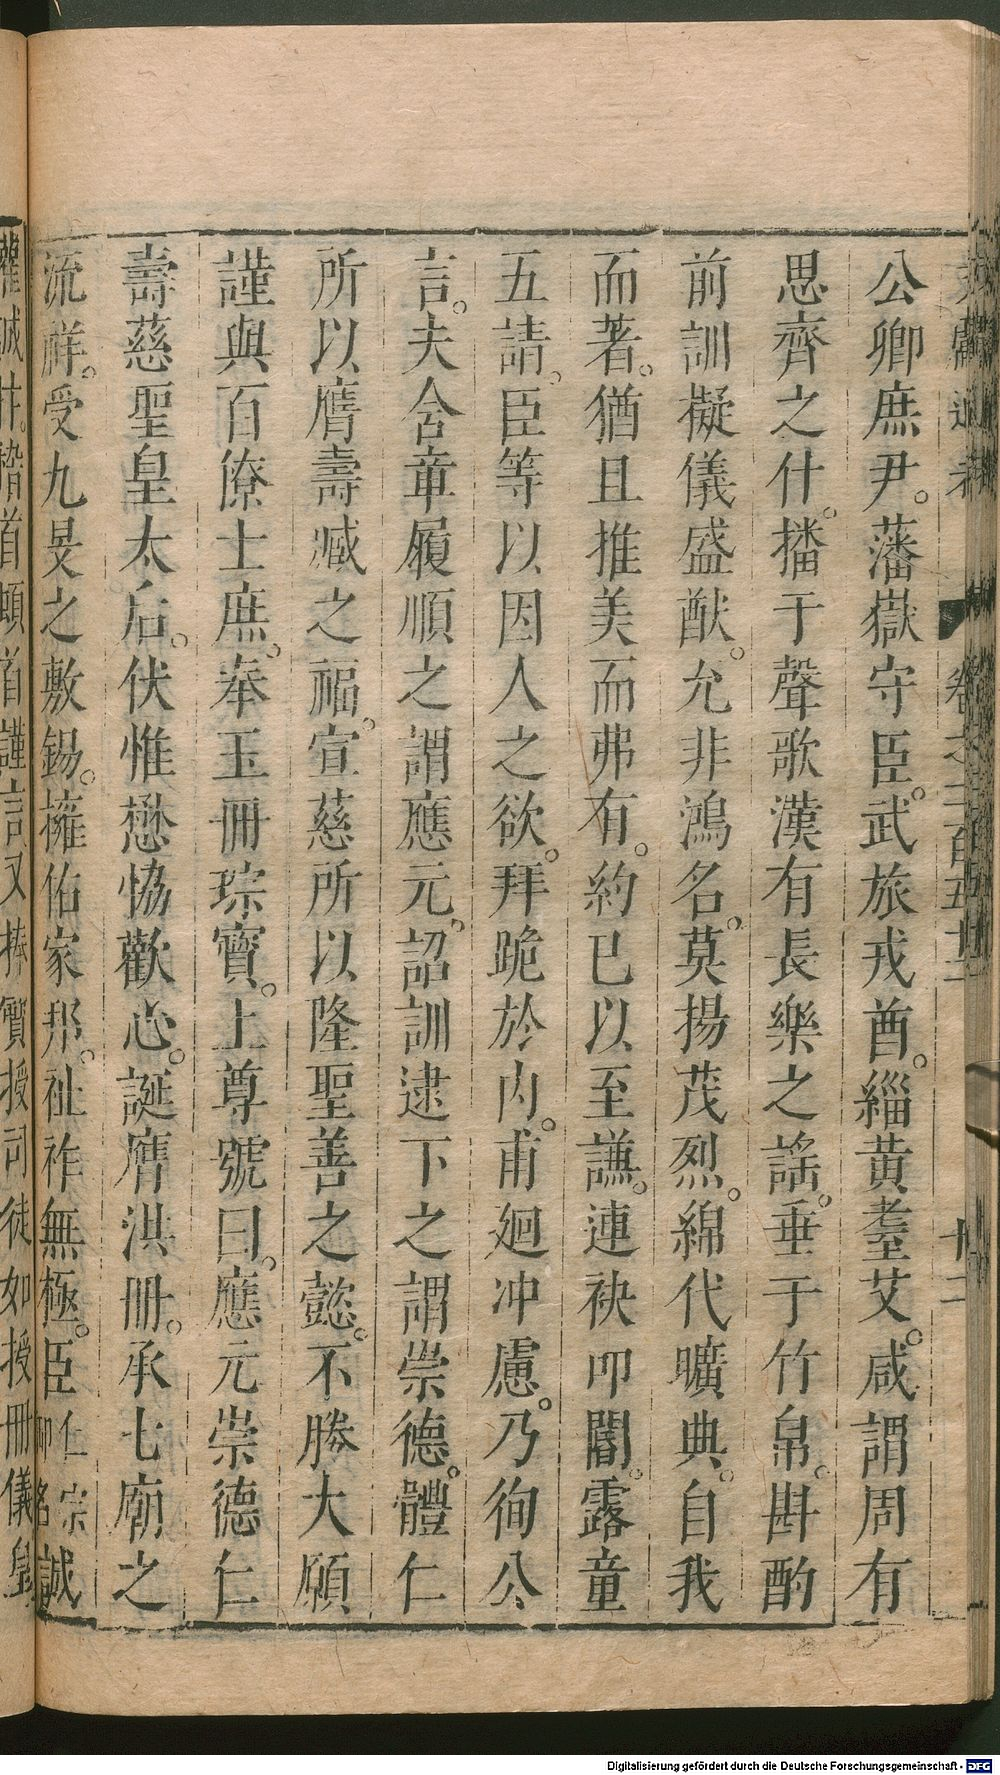 公卿庶尹。藩嶽守臣。武旅戎酋。緇黃耋艾。咸謂周有
思齊之什。播于聲歌漢有長樂之謠。垂于竹帛。斟酌
前訓擬儀盛猷。允非鴻名。莫揚茂烈。綿代曠典。自我
而著。猶且推美而弗有。約已以至謙。連袂叩閽。露章
五請。臣等以因人之欲。拜跪於內。甫廻冲慮。乃徇公
言。夫含章履順之謂應元。詔訓逮下之謂崇德。體仁
所以膺壽臧之福。宣慈所以隆聖善之懿。不勝大願
謹與百僚士庶。奉玉冊琮寶。上尊號曰。應元崇德仁
壽慈聖皇太后。伏惟懋恊歡心。誕膺洪冊。承七廟之
流祥。受九旻之敷錫。擁佑家邦。祉祚無極。臣仁宗御名誠
懽誠忭。稽首頓首謹言又捧寶授司徒如授冊儀皇
Digitalisierung gefördert durch die Deutsche Forschungsgemeinschaft - DFG